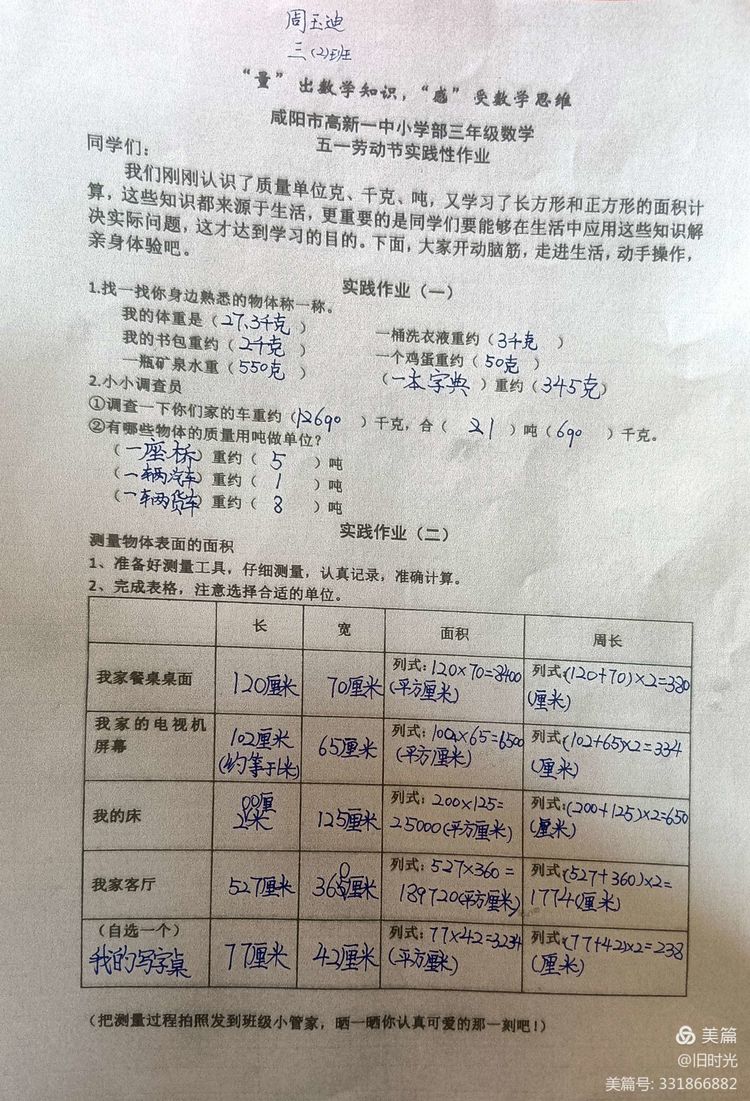 周玉迪
三(2)班
“量”出数学知识,“感”受数学思维
咸阳市高新一中小学部三年级数学
五一劳动节实践性作业
同学们:
我们刚刚认识了质量单位克、千克、吨,又学习了长方形和正方形的面积计
算,这些知识都来源于生活,更重要的是同学们要能够在生活中应用这些知识解
决实际问题,这才达到学习的目的。下面,大家开动脑筋,走进生活,动手操作,
亲身体验吧。
实践作业(一)
1.找一找你身边熟悉的物体称一称。
我的体重是(27.3千克) 一桶洗衣液重约(3千克)
我的书包重约(2千克) 一个鸡蛋重约(50克)
一瓶矿泉水重(550克) (一本字典)重约(345克)
2.小小调查员
①调查一下你们家的车重约(12690)千克,合(21)吨(690)千克。
②有哪些物体的质量用吨做单位?
(一座桥)重约(5)吨
(一车两汽车)重约(1)吨
(一车两货车)重约(8)吨
实践作业(二)
测量物体表面的面积
1、准备好测量工具,仔细测量,认真记录,准确计算。
2、完成表格,注意选择合适的单位。
长 宽 面积 周长
我家餐桌桌面 120厘米 70厘米 列式:120×70=8400(平方厘米) 列式:(120+70)×2=380(厘米)
我家的电视机屏幕 102厘米(约等于1米) 65厘米 列式:100×65=6500(平方厘米) 列式:(102+65)×2=334(厘米)
我的床 200厘米 125厘米 列式:200×125=25000(平方厘米) 列式:(200+125)×2=650(厘米)
我家客厅 527厘米 360厘米 列式:527×360=189720(平方厘米) 列式:(527+360)×2=1774(厘米)
(自选一个)我的写字桌 77厘米 42厘米 列式:77×42=3234(平方厘米) 列式:(77+42)×2=238(厘米)
(把测量过程拍照发到班级小管家,晒一晒你认真可爱的那一刻吧!)
美篇
@旧时光
美篇号: 331866882